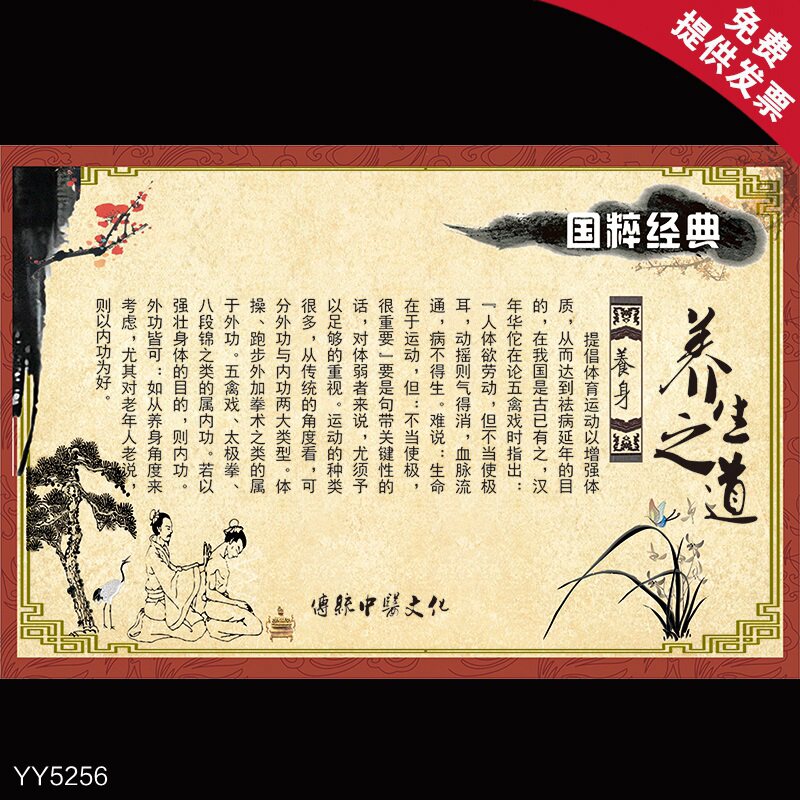 免费
提供发票
国粹经典
养生之道
養身
提倡体育运动以增强体
质，从而达到祛病延年的目
的，在我国是古已有之，汉
年华佗在论五禽戏时指出：
『人体欲劳动，但不当使极
耳，动摇则气得消，血脉流
通，病不得生。难说：生命
在于运动，但：不当使极，
很重要」要是句带关键性的
话，对体弱者来说，尤须予
以足够的重视。运动的种类
很多，从传统的角度看，可
分外功与内功两大类型。体
操、跑步外加拳术之类的属
于外功。五禽戏、太极拳、
八段锦之类的属内功。若以
强壮身体的目的，则内功。
外功皆可：如从养身角度来
考虑，尤其对老年人老说，
则以内功为好。
傳統中醫文化
YY5256